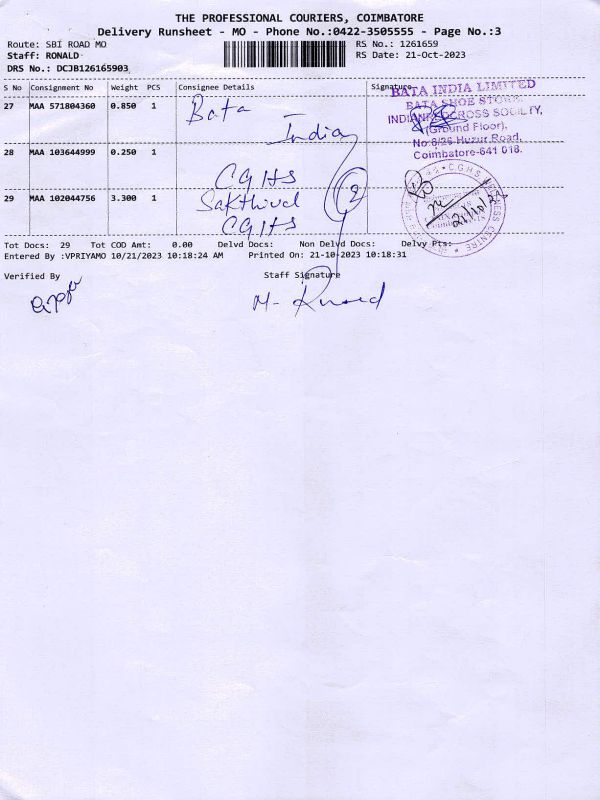 THE PROFESSIONAL COURIERS, COIMBATORE
Delivery Runsheet - MO - Phone No.:0422-3505555 - Page No.:3
Route: SBI ROAD MO
RS No.: 1261659
Staff: RONALD
RS Date: 21-Oct-2023
DRS No.: DCJB126165903
S No Consignment No Weight PCS Consignee Details Signature
27 MAA 571804360 0.850 1 Bata India
28 MAA 103644999 0.250 1 CGHS
29 MAA 102044756 3.300 1 Sakthivel
CGHS
2
BATA INDIA LIMITED
BATA SHOE STORE,
INDIAN RED CROSS SOCILTY,
(Ground Floor),
No:8/26 Huzur Road,
Coimbatore-641 018.
C.G.H.S WELLNESS CENTRE
21/10/23
Tot Docs: 29 Tot COD Amt: 0.00 Delvd Docs: Non Delvd Docs: Delvy Pts:
Entered By :VPRIYAMO 10/21/2023 10:18:24 AM Printed On: 21-10-2023 10:18:31
Verified By Staff Signature